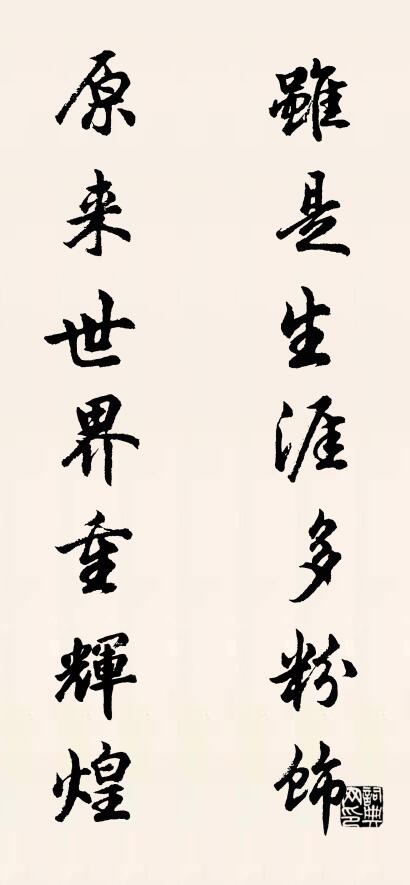 雖是生涯多粉飾
原来世界重輝煌
詞典网印